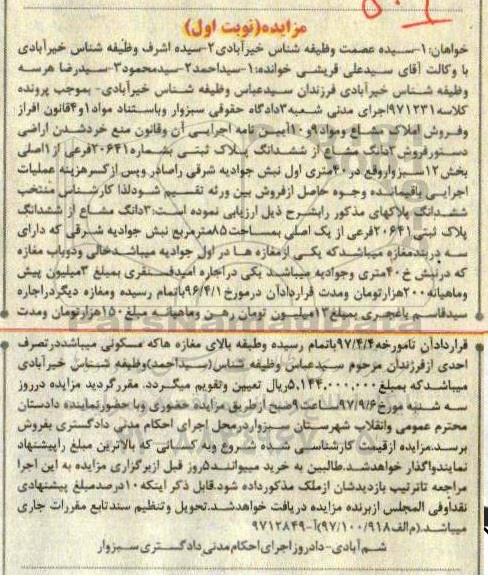 مزایده(نوبت اول)
خواهان:۱-سیده عصمت وظیفه شناس خیرآبادی۲-سیده اشرف وظیفه شناس خیرآبادی
با وکالت آقای سیدعلی قریشی خوانده:۱-سیداحمد۲-سیدمحمود۳-سیدرضا هرسه
وظیفه شناس خیرآبادی فرزندان سیدعباس وظیفه شناس خیرآبادی- بموجب پرونده
کلاسه۹۷۱۲۳۱اجرای مدنی شعبه۳دادگاه حقوقی سبزوار وباستناد مواد۱و۴قانون افراز
وفروش املاک مشاع ومواد۹و۱۰آیین نامه اجرایی آن وقانون منع خردشدن اراضی
دستورفروش۳دانگ مشاع از ششدانگ پلاک ثبتی بشماره۲۰۶۴۱فرعی از۱اصلی
بخش۱۲سبزوارواقع در۴۰متری اول نبش جوادیه شرقی راصادر وپس ازکسرهزینه عملیات
اجرایی باقیمانده وجوه حاصل ازفروش بین ورثه تقسیم شودلذا کارشناس منتخب
ششدانگ پلاکهای مذکور رابشرح ذیل ارزیابی نموده است:۳دانگ مشاع از ششدانگ
پلاک ثبتی۲۰۶۴۱فرعی از یک اصلی بمساحت۸۵مترمربع نبش جوادیه شرقی که دارای
سه دربندمغازه میباشدکه یکی ازمغازه ها در اول جوادیه میباشدخالی ودوباب مغازه
که درنبش خ۴۰متری وجوادیه میباشد یکی دراجاره امیدفنفری بمبلغ ۳میلیون پیش
وماهیانه۲۰۰هزارتومان ومدت قراردادآن درمورخ۹۶/۴/۱باتمام رسیده ومغازه دیگردراجاره
سیدقاسم یاغچری بمبلغ۱۲میلیون تومان رهن وماهیانه مبلغ۱۵۰هزارتومان ومدت
قراردادآن تامورخه۹۷/۴/۴باتمام رسیده وطبقه بالای مغازه هاکه مسکونی میباشددرتصرف
احدی ازفرزندان مرحوم سیدعباس وظیفه شناس(سیداحمد)وظیفه شناس خیرآبادی
میباشدکه بمبلغ۵,۱۴۴,۰۰۰,۰۰۰ریال تعیین وتقویم میگردد. مقررگردید مزایده درروز
سه شنبه مورخ۹۷/۹/۶ساعت۹صبح ازطریق مزایده حضوری وبا حضورنماینده دادستان
محترم عمومی وانقلاب شهرستان سبزواردرمحل اجرای احکام مدنی دادگستری بفروش
برسد.مزایده ازقیمت کارشناسی شده شروع وبه کسانی که بالاترین مبلغ راپیشنهاد
نمایندواگذار خواهدشد.طالبین به خرید میتوانند۵روز قبل ازبرگزاری مزایده به این اجرا
مراجعه تاترتیب بازدیدشان ازملک مذکورداده شود.قابل ذکر اینکه۱۰درصدمبلغ پیشنهادی
نقداوفی المجلس ازبرنده مزایده دریافت خواهدشد.تحویل وتنظیم سندتابع مقررات جاری
میباشد.(م‌الف۹۷/۱۰۰/۹۱۸)آ-۹۷۱۲۸۴۹
شم آبادی-دادروز اجرای احکام مدنی دادگستری سبزوار